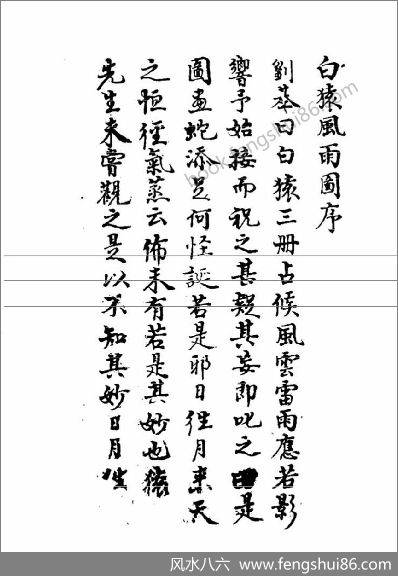 白猿風雨圖序
劉基曰白猿三册占候風雲雷雨應若影
響予始接而視之甚疑其妄即叱之是
圖画蛇添足何怪誕若是邪日徃月来天
之恒徑氣蒸云佈未有若是其妙也猿
先生未甞觀之是以不知其妙日月
book.fengshui86.com
风水八六 www.fengshui86.com